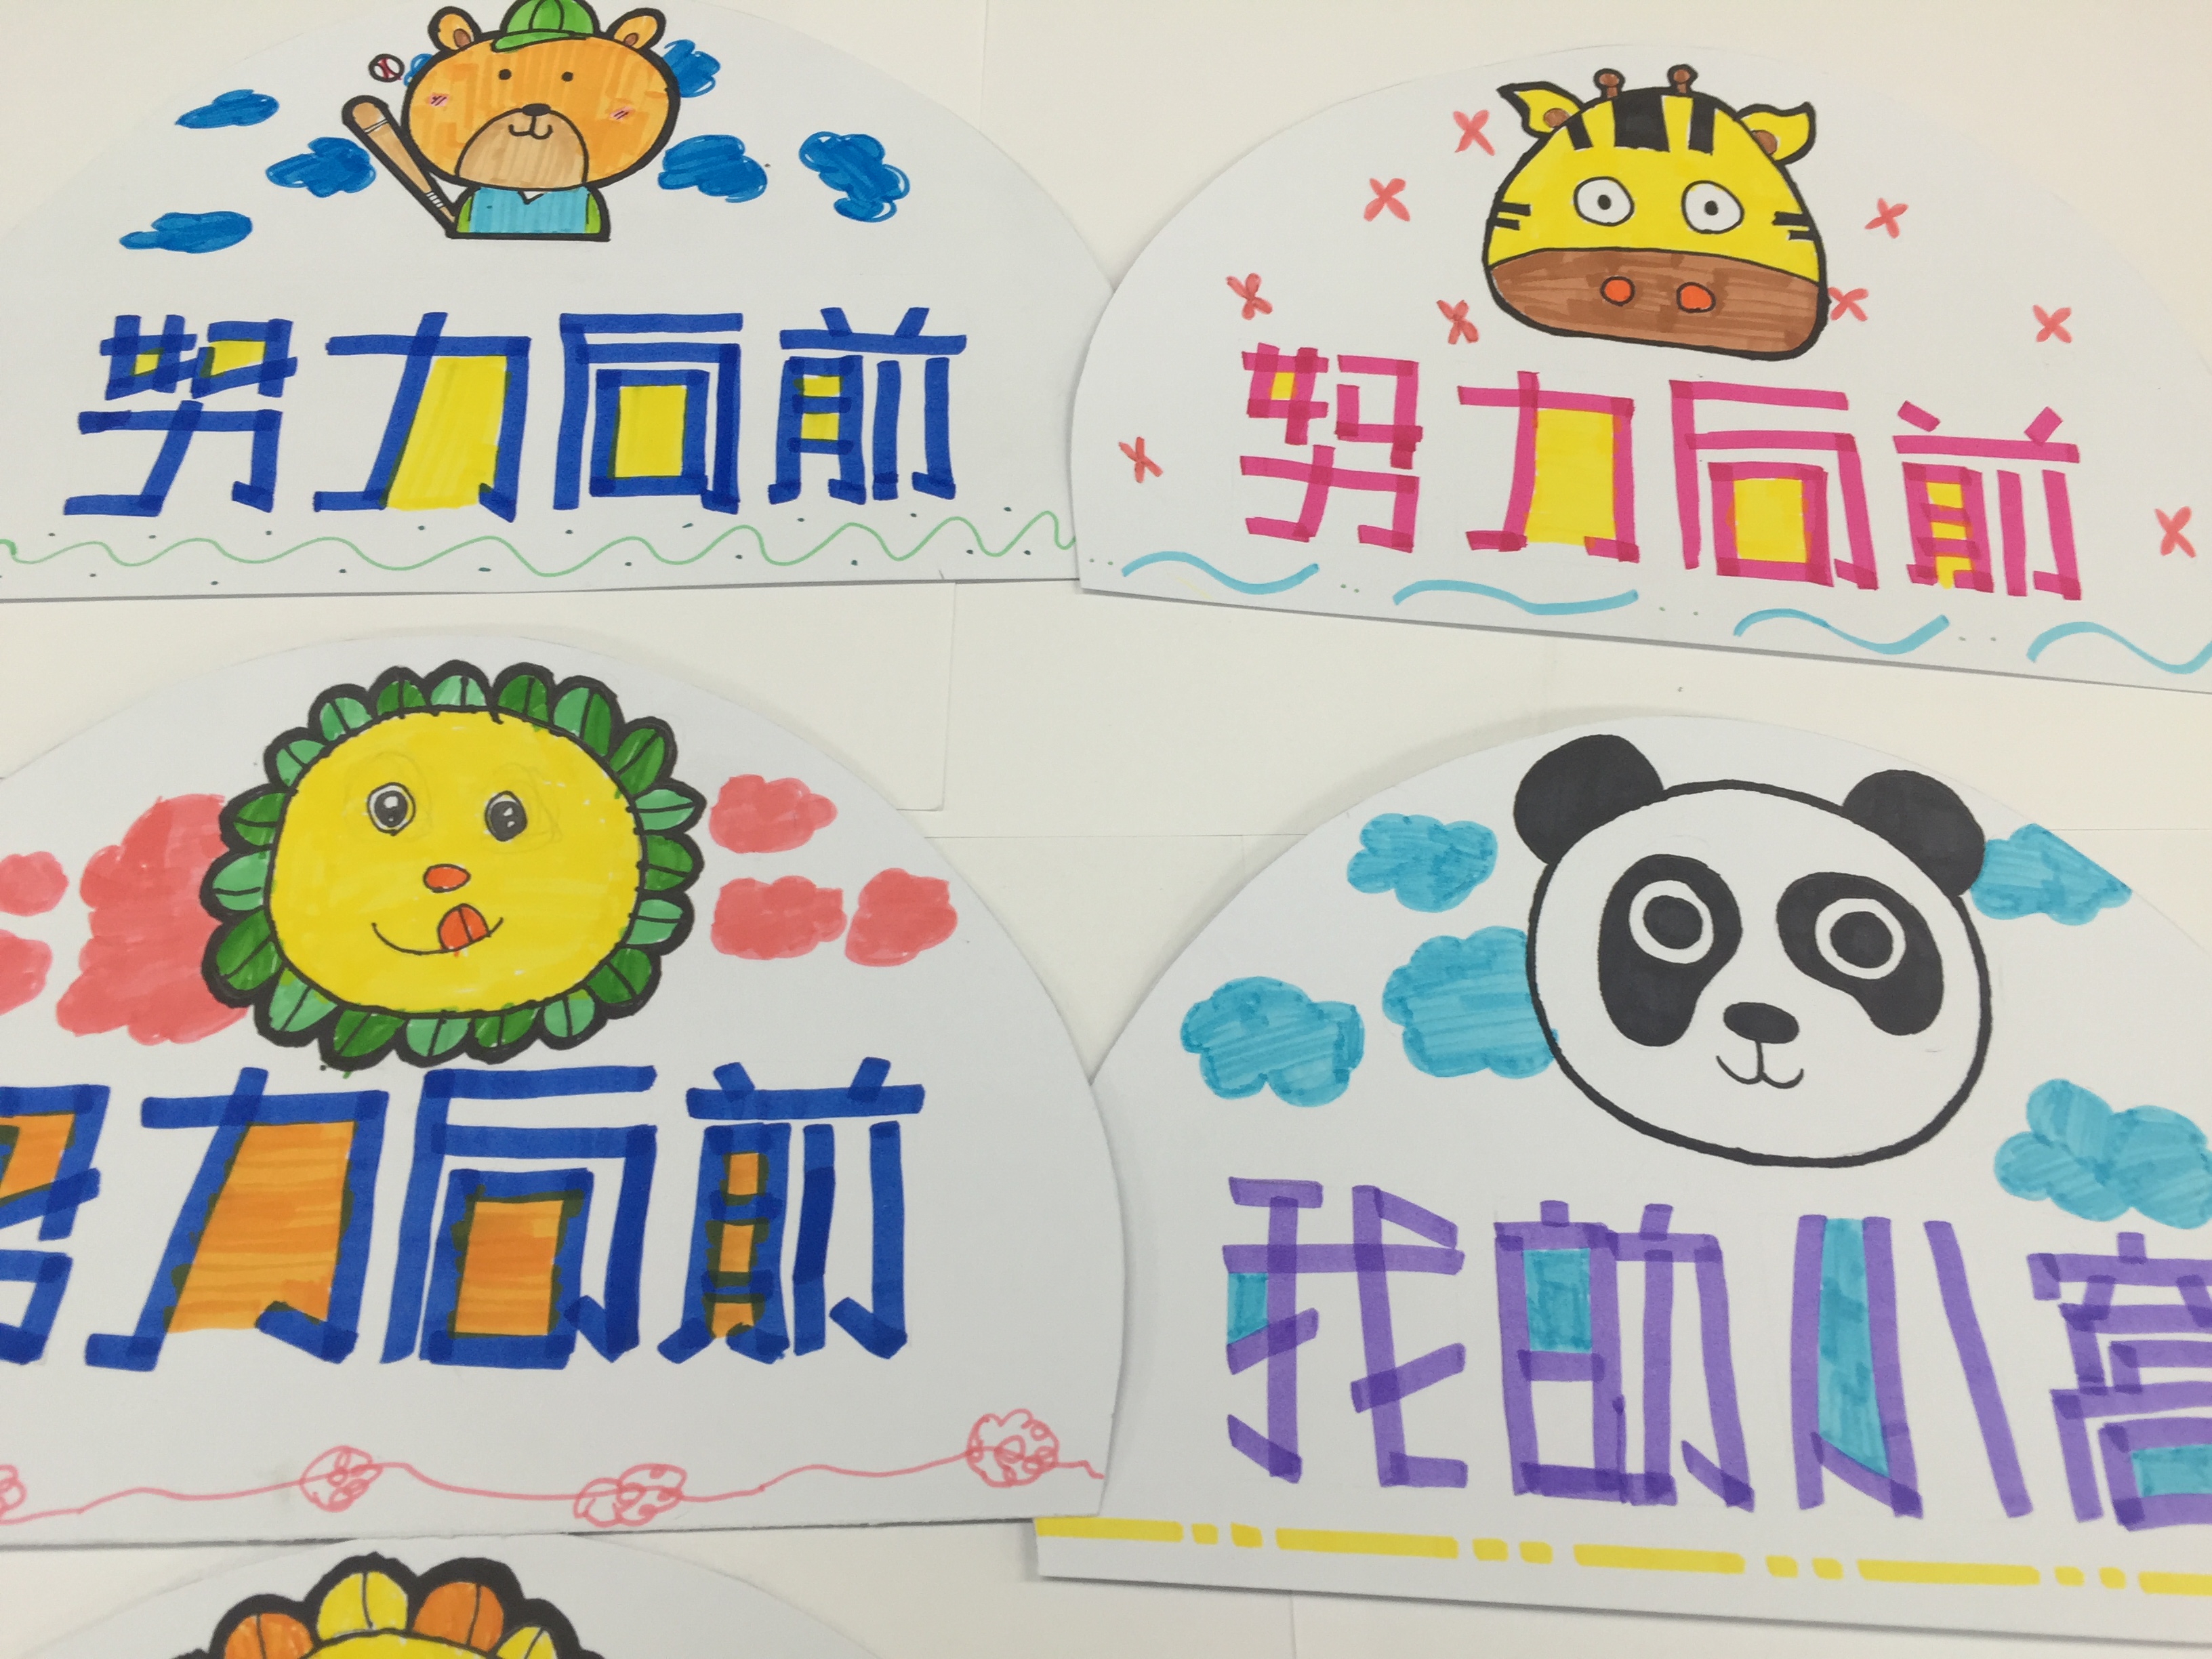 努力向前
努力向前
努力向前
我的小窝